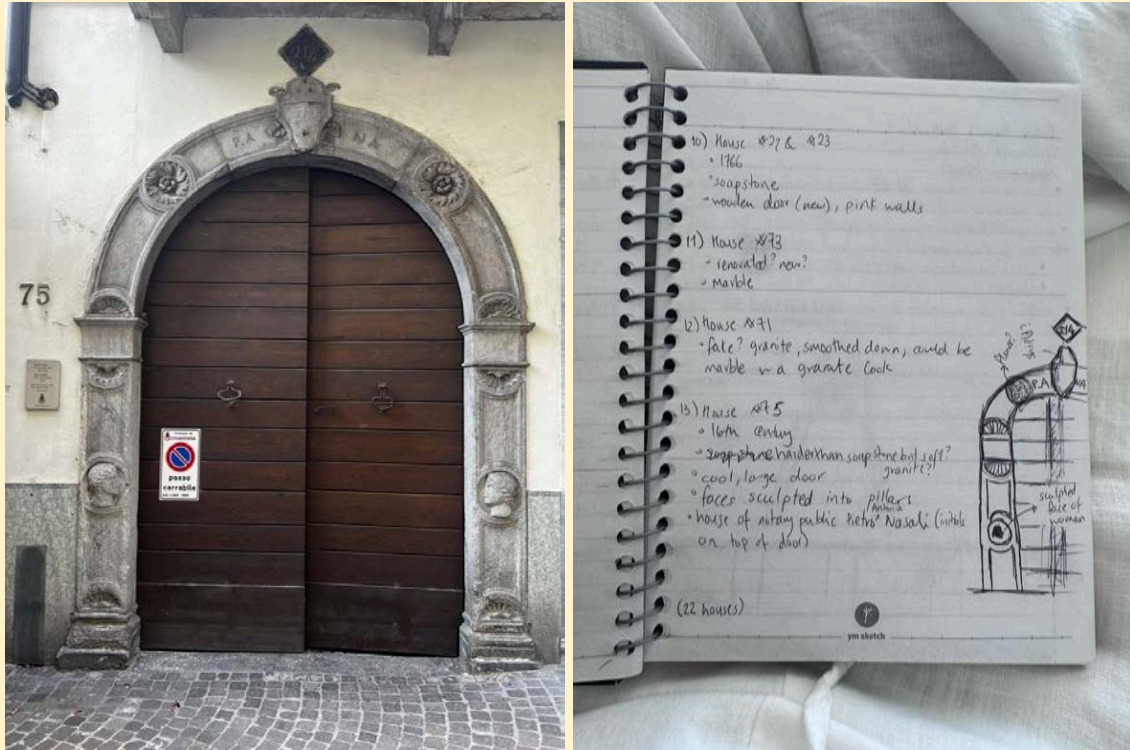 214
P.A NA
75
passo
carrabile
10) House #21 & #23
• 1766
• soapstone
- wooden door (new), pink walls
11) House #73
- renovated? new?
- Marble
12) House #71
• fake? granite, smoothed down, could be
marble w a granite look
13) House #75
• 16th century
• soapstone harder than soapstone but soft?
granite?
• cool, large door
• faces sculpted into pillars
Antonio
• house of notary public Pietro Nasali (initials
on top of door)
(22 houses)
214
shield?
flower?
P.A NA
sculpted
face of
woman
ym sketch